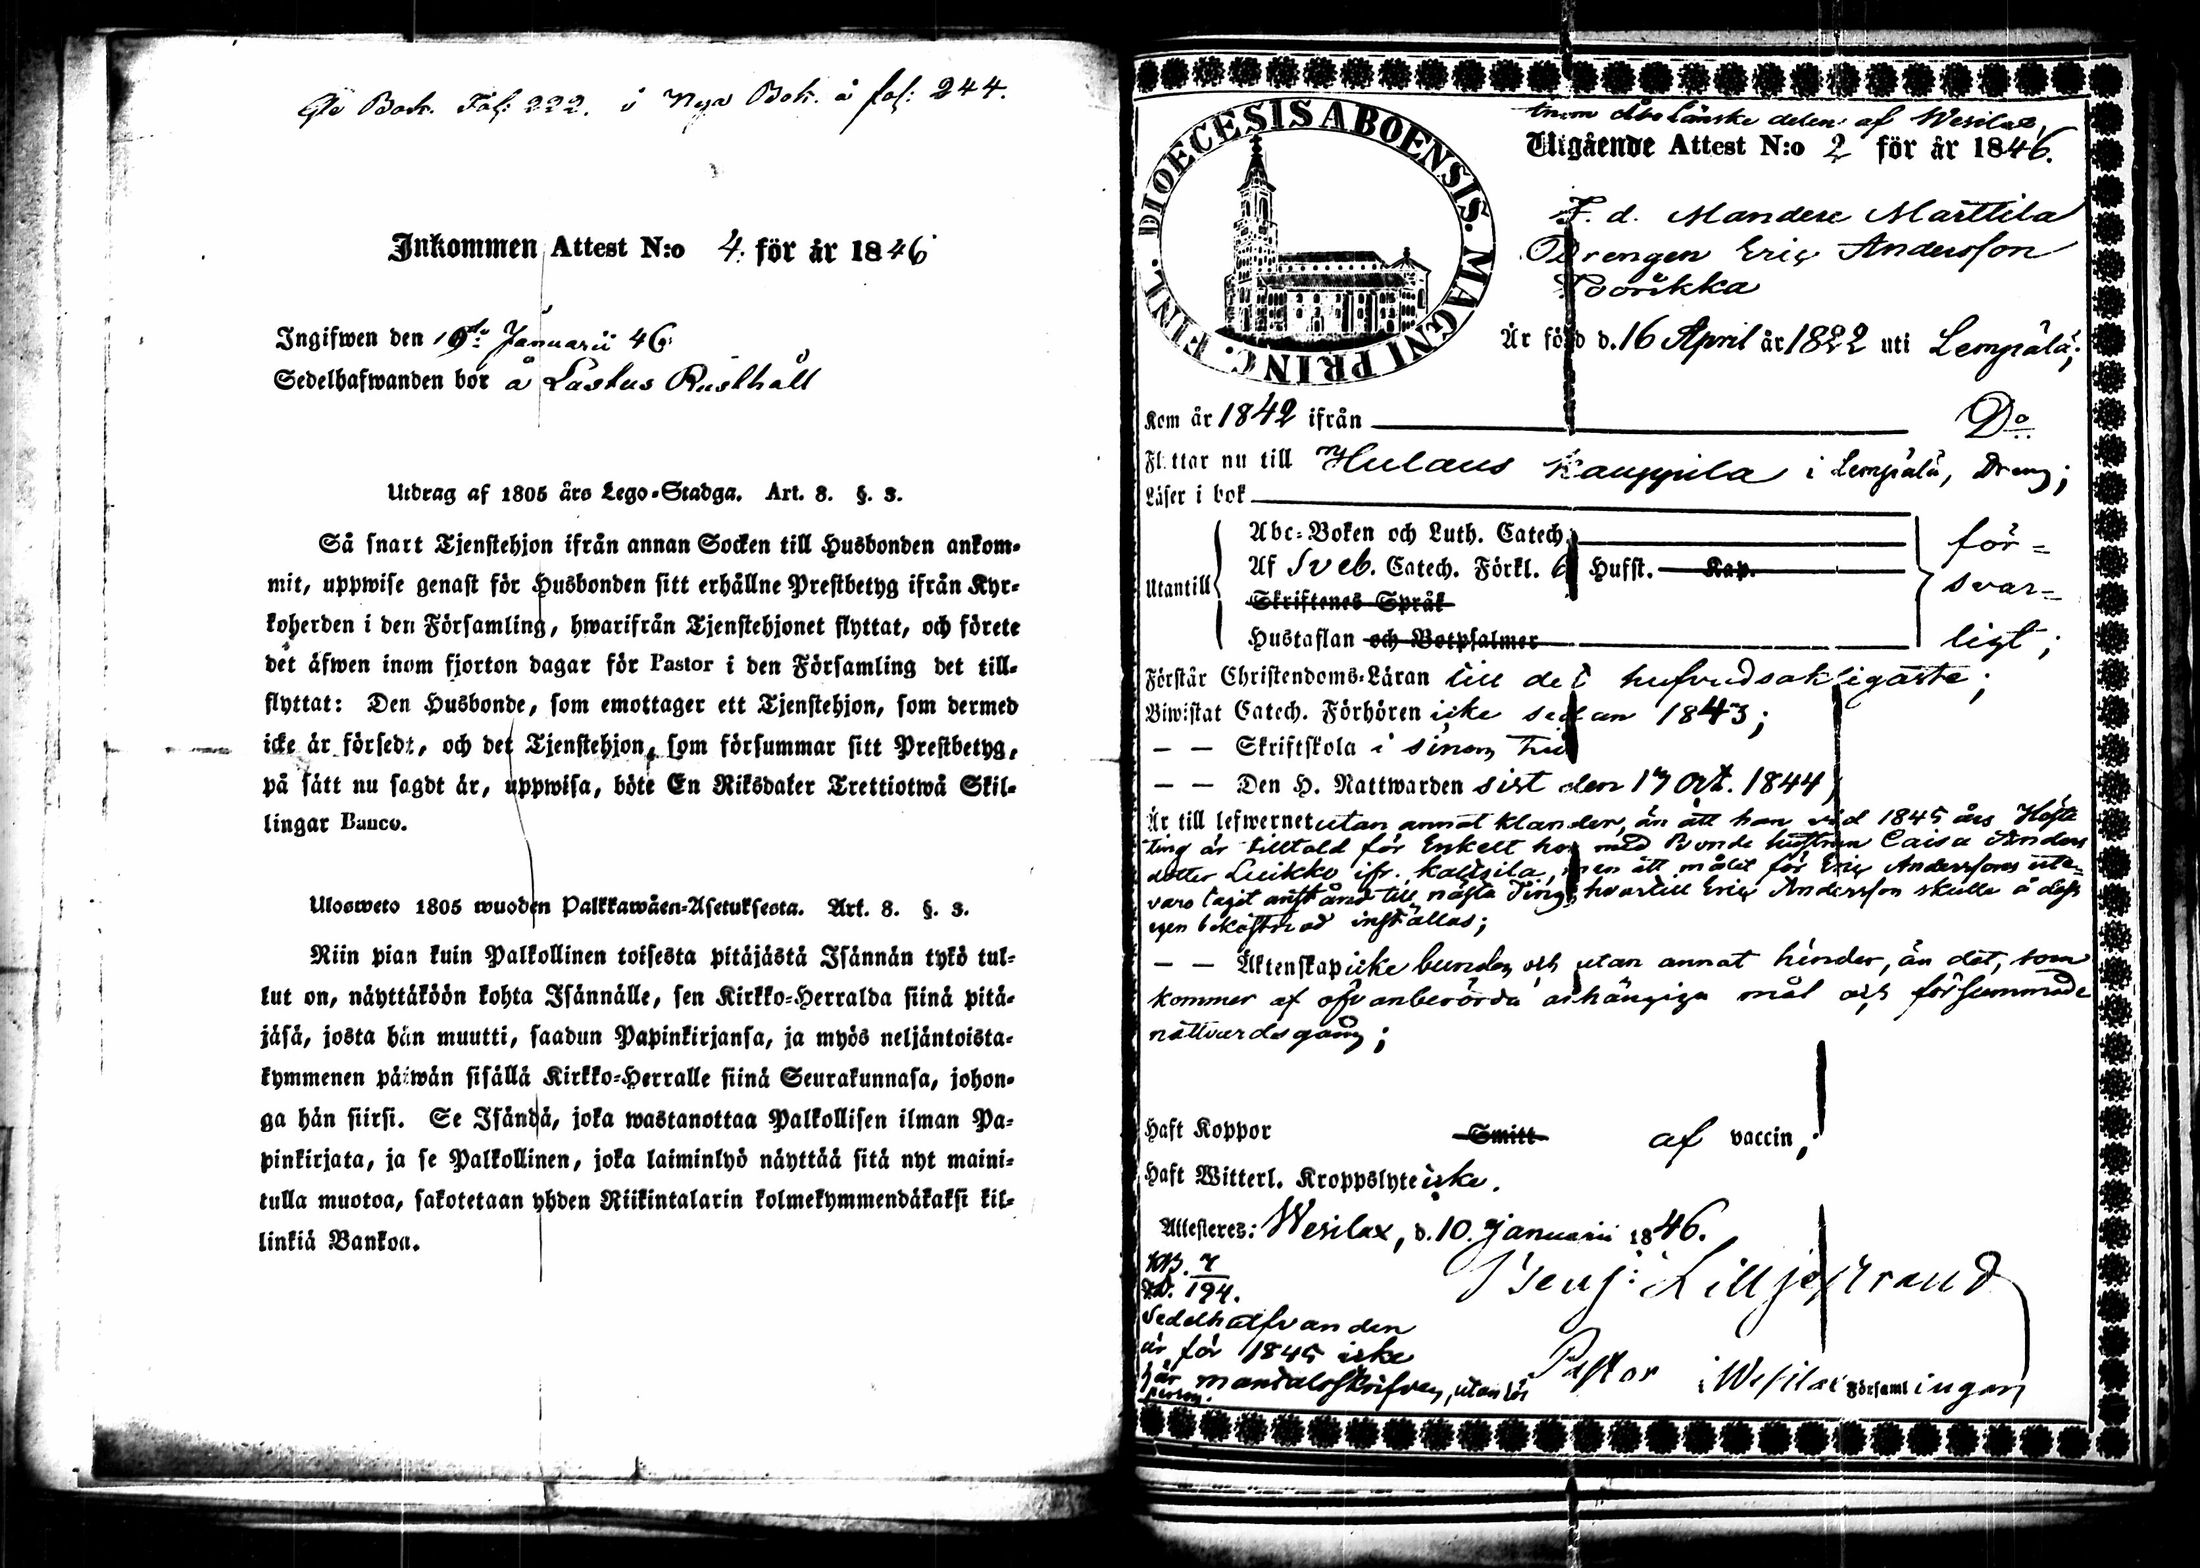 Bok. Fol: 222. i Nya Bok. å fol: 244.
Inkommen Attest N:o 4. för år 1846
Ingifwen den 19de Januarii 46
Sedelhafwanden bor å Lastus Rusthåll
Utdrag af 1805 års Lego-Stadga. Art. 8. §. 3.
Så snart Tjenstehjon ifrån annan Socken till Husbonden ankom-
mit, uppwise genast för Husbonden sitt erhållne Prestbetyg ifrån Kyr-
koherden i den Församling, hwarifrån Tjenstehjonet flyttat, och förete
det äfwen inom fjorton dagar för Pastor i den Församling det till-
flyttat: Den Husbonde, som emottager ett Tjenstehjon, som dermed
icke är försedt, och det Tjenstehjon, som försummar sitt Prestbetyg,
på sätt nu sagdt är, uppwisa, böte En Riksdaler Trettiotwå Skil-
lingar Banco.
Ulosweto 1805 wuoden Palkkawäen-Asetuksesta. Art. 8. §. 3.
Niin pian kuin Palkollinen toisesta pitäjästä Isännän tykö tul-
lut on, näyttäköön kohta Isännälle, sen Kirkko-Herralda siinä pitä-
jäsä, josta hän muutti, saadun Papinkirjansa, ja myös neljäntoista-
kymmenen päiwän sisällä Kirkko-Herralle siinä Seurakunnasa, johon-
ga hän siirsi. Se Isändä, joka wastanottaa Palkollisen ilman Pa-
pinkirjata, ja se Palkollinen, joka laiminlyö näyttää sitä nyt maini-
tulla muotoa, sakotetaan yhden Riikintalarin kolmekymmendäkaksi kil-
linkiä Bankoa.
DIOECESIS ABOENSIS. MAGNI PRINC. FINL.
inom Åbo Länske delen af Wesilax,
Utgående Attest N:o 2 för år 1846.
F. d. Mandere Marttila
Drengen Eric Andersson
Är född d. 16 April år 1822 uti Lempälä;
Kom år 1842 ifrån Do
Flyttar nu till Hulaus Kauppila i Lempälä, Dreng;
Läser i bok
Abc-Boken och Luth. Catech.
Utantill Af Sveb. Catech. Förkl. 6 Hufst. Kap.
Skriftenes Språk
Hustaflan och Botpsalmer
för-
svar-
ligt;
Förstår Christendoms-Läran till det hufvudsakligaste;
Biwistat Catech. Förhören icke sedan 1843;
— — Skriftskola i sinom tid
— — Den H. Nattwarden sist den 17 Oct. 1844;
Är till lefwernet utan annat klander, än att han vid 1845 års Höste
ting är tilltald för Enkelt hor med Bonde hustrun Caisa Anders
dotter Luikku ifr. , men att målet för Eric Anderssons ute-
varo tagit anstånd till nästa Ting, hvartill Eric Andersson skulle å dess
egen bekostnad inställas;
— — Äktenskap icke bunden och utan annat hinder, än det, som
kommer af ofvanberörda anhängiga mål och försummade
nattvardsgång;
Haft Koppor Smitt af vaccin;
Haft Witterl. Kroppslyte icke.
Attesteres: Wesilax, d. 10. Januarii 1846.
194.
Benj: Lilljestrand
Sedelhafvanden
är för 1845 icke
här mantalsskrifven, utan lös
person.
Pastor i Wesilax Församlingen